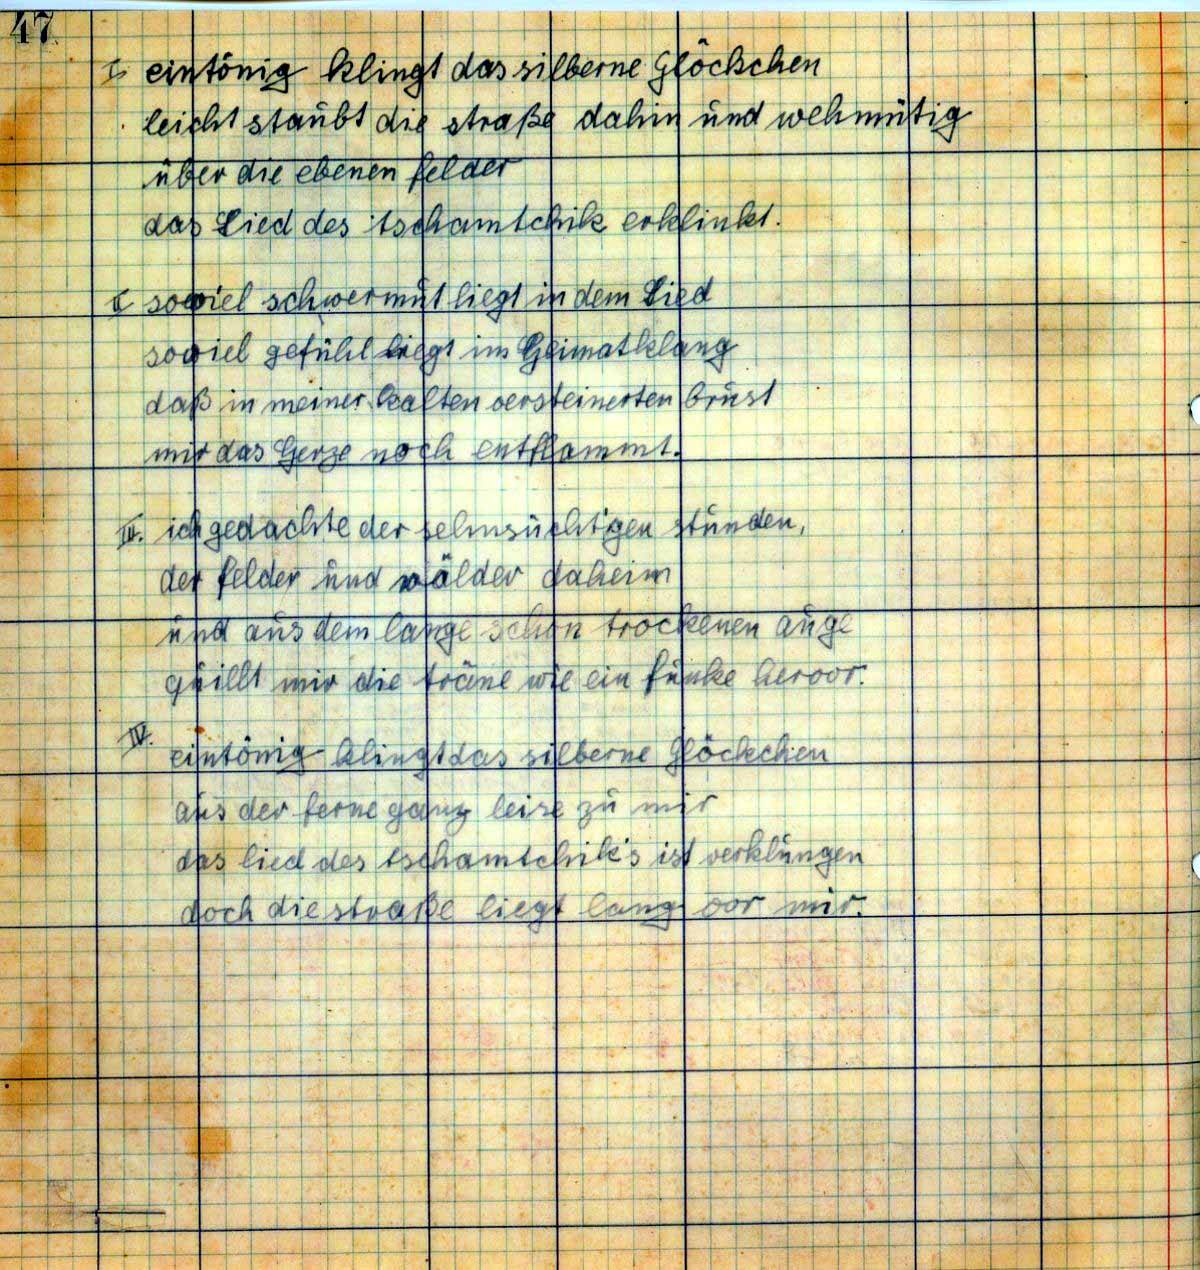 47
I. eintönig klingt das silberne Glöckchen
leicht staubt die straße dahin und wehmütig
über die ebenen felder
das Lied des tschamtchik erklinkt.
II. soviel schwermut liegt in dem Lied
soviel gefühl liegt im Heimatklang
daß in meiner kalten versteinerten brust
mir das Herze noch entflammt.
III. ich gedachte der sehnsücht'gen stunden,
der felder und wälder daheim
und aus dem lange schon trockenen auge
quillt mir die träne wie ein funke hervor.
IV. eintönig klingt das silberne Glöckchen
aus der ferne ganz leise zu mir
das lied des tschamtchik's ist verklungen
doch die straße liegt lang vor mir.